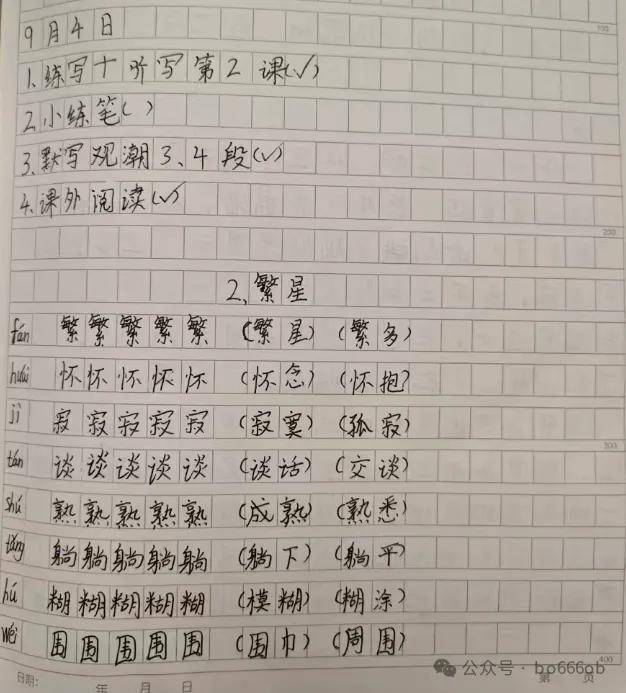 9月4日
1.练写十听写第2课(✓)
2.小练笔( )
3.默写观潮3、4段(✓)
4.课外阅读(✓)
2、繁星
fán 繁繁繁繁繁 (繁星) (繁多)
huái 怀怀怀怀怀 (怀念) (怀抱)
jì 寂寂寂寂寂 (寂寞) (孤寂)
tán 谈谈谈谈谈 (谈话) (交谈)
shú 熟熟熟熟熟 (成熟) (熟悉)
tǎng 躺躺躺躺躺 (躺下) (躺平)
hú 糊糊糊糊糊 (模糊) (糊涂)
wéi 围围围围围 (围巾) (周围)
日期: 年 月 日 第 页
100
200
300
400
公众号·bp666ob